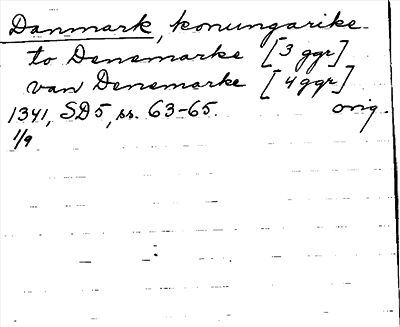 Danmark, konungarike
to Denemarke [3 ggr]
van Denemarke [4 ggr]
1341, SD5, ss. 63-65. orig.
1/9